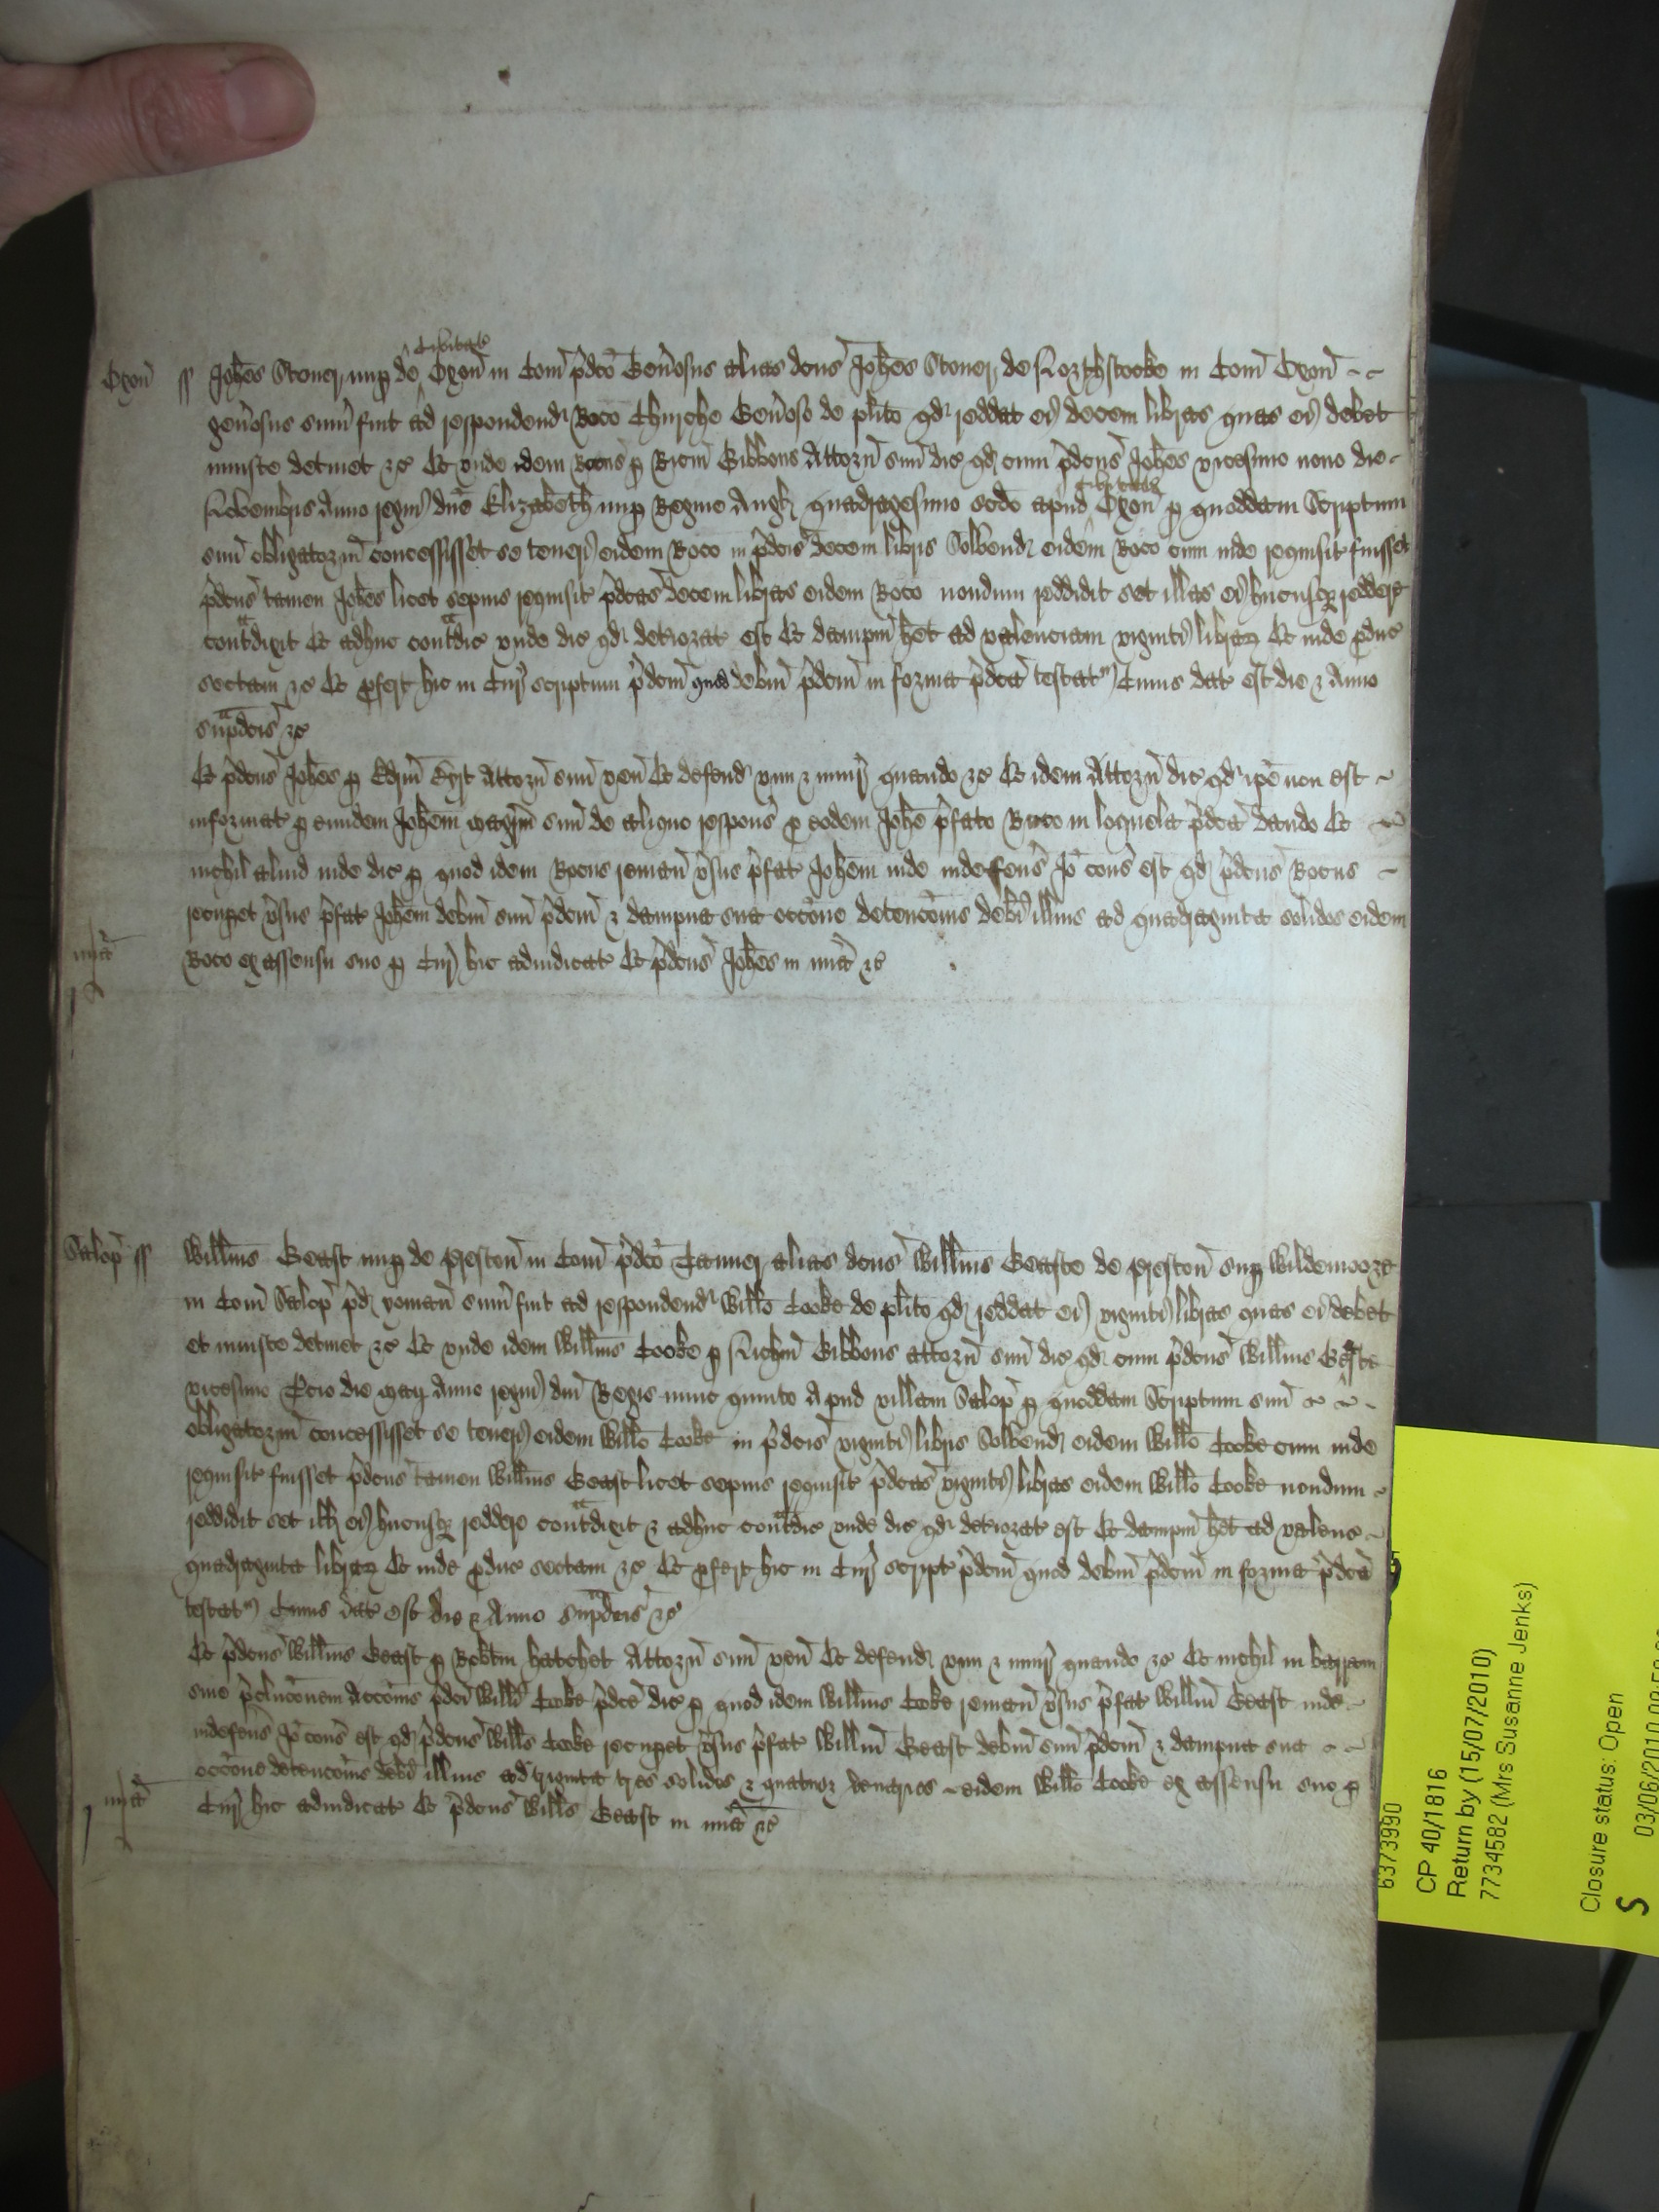 Civitate
Oxon ss Johēs Stoner nup de Oxon in Com p̄dco Gen̄osus alias dcus Johēs Stoner de Northstooke in Com Oxon
gen̄osus sum fuit ad respondend Roco Chirche Gen̄oso de plito qd reddat ei decem libras quas ei debet
iniuste detinet zc Et unde idem Rocus p Ricm Gibbons Attorn suū dic qd cum p̄dcus Johēs vicesimo nono die
Novembris Anno regni dnē Elizabeth nup Regine Angl quadragesimo scdo apud Civitatem Oxon p quoddam Scriptum
suū obligatoriū concessisset se teneri eidem Roco in p̄dcis decem libris Solvend eidem Roco cum inde requisit fuisset
p̄dcus tamen Johēs licet sepius requisit p̄dcas decem libras eidem Roco nondum reddidit set illas ei hucusq reddere
contᵃdixit Et adhuc contᵃdic unde dic qd deteriorat est Et dampm het ad valenciam viginti librar Et inde pduc
sectam zc Et pfert hic in Cur scriptum p̄dcm quod debm p̄dcm in forma p̄dca testat Cuius dat est die z Anno
supᵃdcis zc
Et p̄dcus Johēs p Edm Attorn suū ven Et defend vim z iniur quando zc Et idem Attorn dic qd ipe non est
informat p eundem Johem magrm suū de aliquo respons p eodem Johe p̄fato Roco in loquela p̄dca dando Et
nichil aliud inde dic p quod idem Rocus reman v̄sus p̄fat Johem inde indefens Io cons est qd p̄dcus Rocus
recupet v̄sus p̄fat Johem debm suū p̄dcm z dampna sua occōne detencōnis debi illius ad quadraginta solidos eidem
mīa Roco ex assensu suo p Cur hic adiudicat Et p̄dcus Johēs in mīa zc
Salop ss Willms Geast nup de Preston in Com p̄dco Tanner alias dcus Willms Geaste de Preston sup Wildemoore
in Com Salop p̄d yoman sum fuit ad respondend Willo Cooke de plito qd reddat ei viginti libras quas ei debet
et iniuste detinet zc Et unde idem Willms Cooke p Richm Gibbons attorn suū dic qd cum p̄dcus Willms Geaste
vicesimo Tcio die Maij Anno regni dni Regis nunc quinto Apud villam Salop p quoddam Scriptum suū
obligatoriū concessisset se teneri eidem Willo Cooke in p̄dcis viginti libris Solvend eidem Willo Cooke cum inde
requisit fuisset p̄dcus tamen Willms Geast licet sepius requisit p̄dcas viginti libras eidem Willo Cooke nondum
reddidit set ill ei hucusq reddere contᵃdixit z adhuc contᵃdic unde dic qd deteriorat est Et dampm het ad valenc
quadraginta librar Et inde pduc sectam zc Et pfert hic in Cur script p̄dcm quod debm p̄dcm in forma p̄dca
testat Cuius dat est die z Anno supᵃdcis zc
Et p̄dcus Willms Geast p Robtm Hatchet Attorn suū ven Et defend vim z iniur quando zc Et nichil in barram
sive p̄clucōnem Accōnis p̄dci Willi Cooke p̄dce dic p quod idem Willms Cooke reman v̄sus p̄fat Willm Geast inde
indefens Io cons est qd p̄dcus Wills Cooke recupet v̄sus p̄fat Willm Geast debm suū p̄dcm z dampna sua
occōne detencōnis debi illius ad triginta tres solidos z quatuor denarios eidem Willo Cooke ex assensu suo p
mīa Cur hic adiudicat Et p̄dcus Wills Geast in mīa zc
6373990
CP 40/1816
Return by (15/07/2010)
7734582 (Mrs Susanne Jenks)
Closure status: Open
S